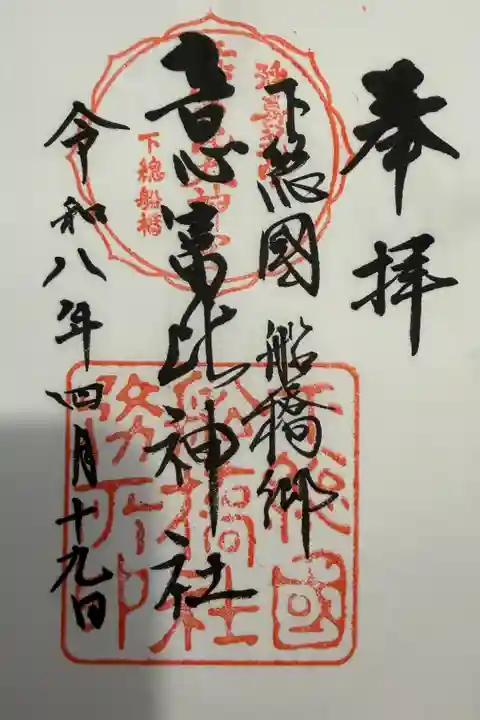 奉拝
下総國 船橋郷
意富比神社
令和八年四月十九日
下總船橋
下総國
船橋社
務所印